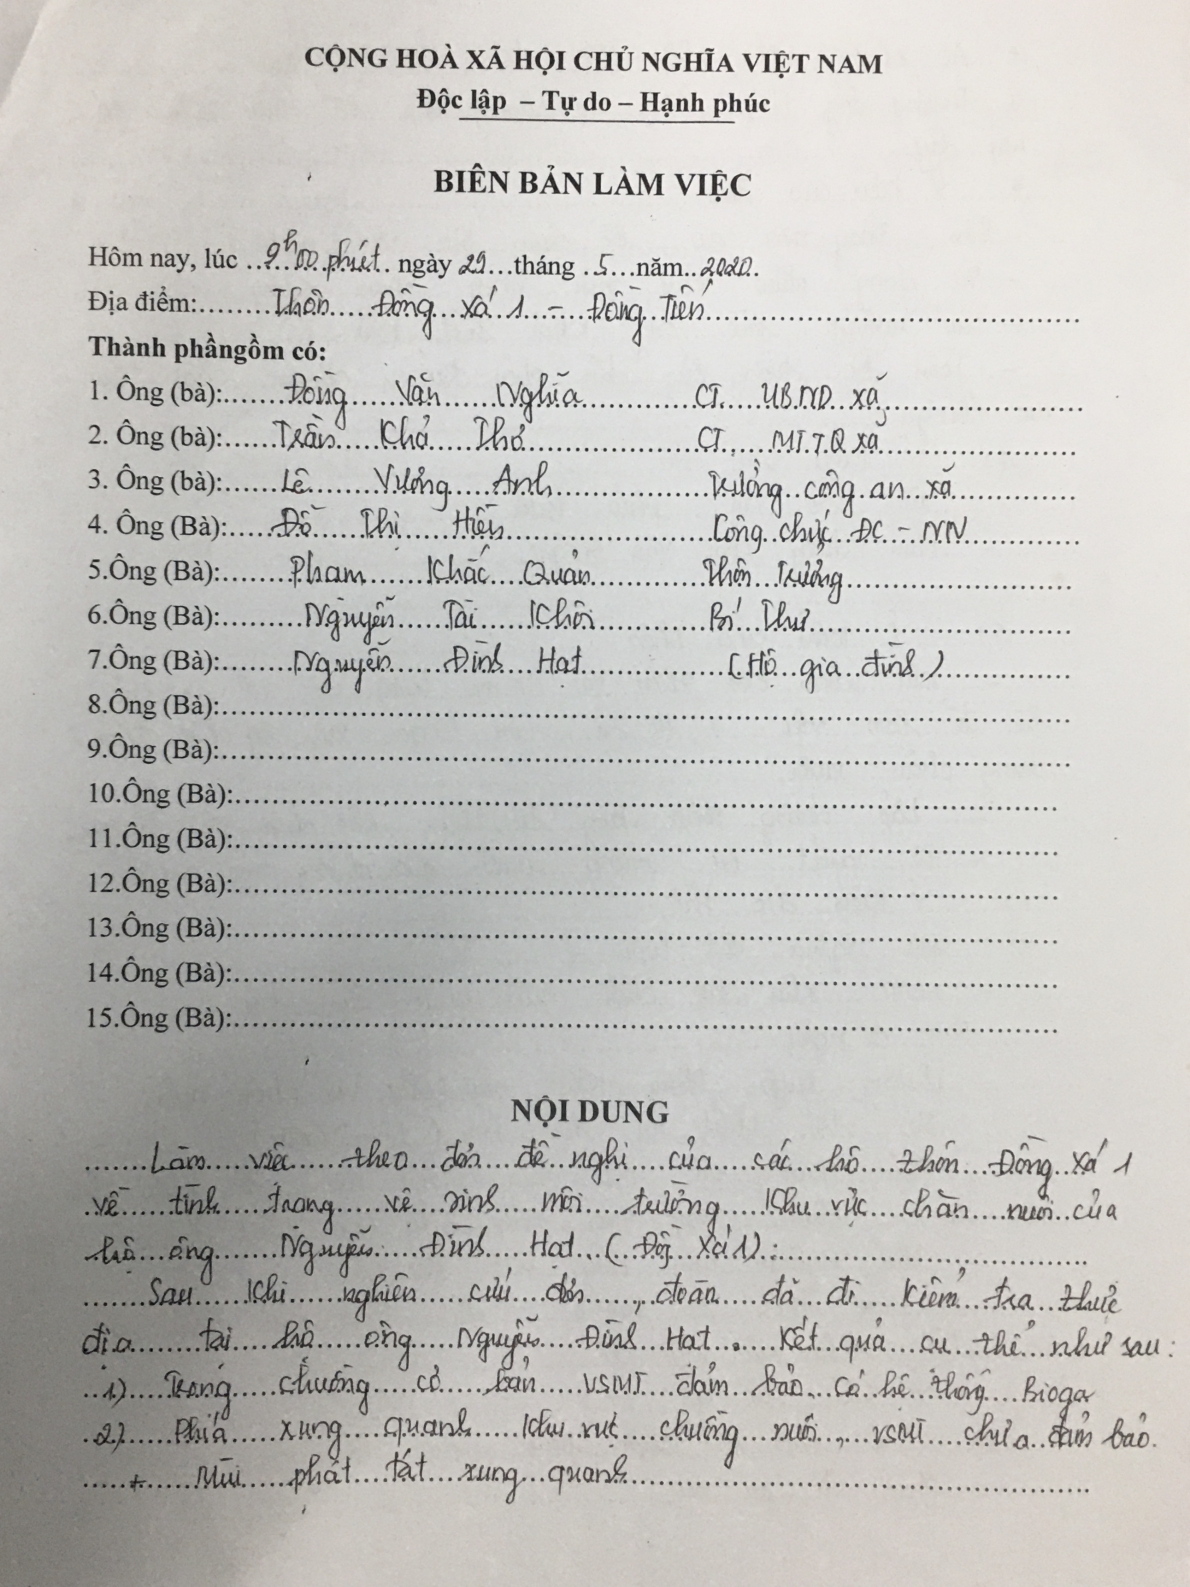 CỘNG HOÀ XÃ HỘI CHỦ NGHĨA VIỆT NAM
Độc lập – Tự do – Hạnh phúc
BIÊN BẢN LÀM VIỆC
Hôm nay, lúc 9h00 phút ngày 29 tháng 5 năm 2020
Địa điểm: Thôn Đồng xá 1 - Đồng Tiến
Thành phầngồm có:
1. Ông (bà): Đồng Văn Nghĩa CT. UBND xã
2. Ông (bà): Trần Khả Thơ CT. MTTQ xã
3. Ông (bà): Lê Vương Anh Trưởng công an xã
4. Ông (Bà): Đỗ Thị Hiền Công chức ĐC - NN
5.Ông (Bà): Phạm Khắc Quản Thôn Trưởng
6.Ông (Bà): Nguyễn Tài Khôi Bí Thư
7.Ông (Bà): Nguyễn Đình Hạt (Hộ gia đình)
8.Ông (Bà):
9.Ông (Bà):
10.Ông (Bà):
11.Ông (Bà):
12.Ông (Bà):
13.Ông (Bà):
14.Ông (Bà):
15.Ông (Bà):
NỘI DUNG
Làm việc theo đơn đề nghị của các hộ thôn Đồng xá 1
về tình trạng vệ sinh môi trường khu vực chăn nuôi của
hộ ông Nguyễn Đình Hạt (Đg Xá 1):
Sau khi nghiên cứu đơn, đoàn đã đi kiểm tra thực
địa tại hộ ông Nguyễn Đình Hạt. Kết quả cụ thể như sau:
1) Trong chuồng cơ bản VSMT đảm bảo, có hệ thống Bioga
2) Phía xung quanh khu vực chuồng nuôi, VSMT chưa đảm bảo.
+ Mùi phát tát xung quanh